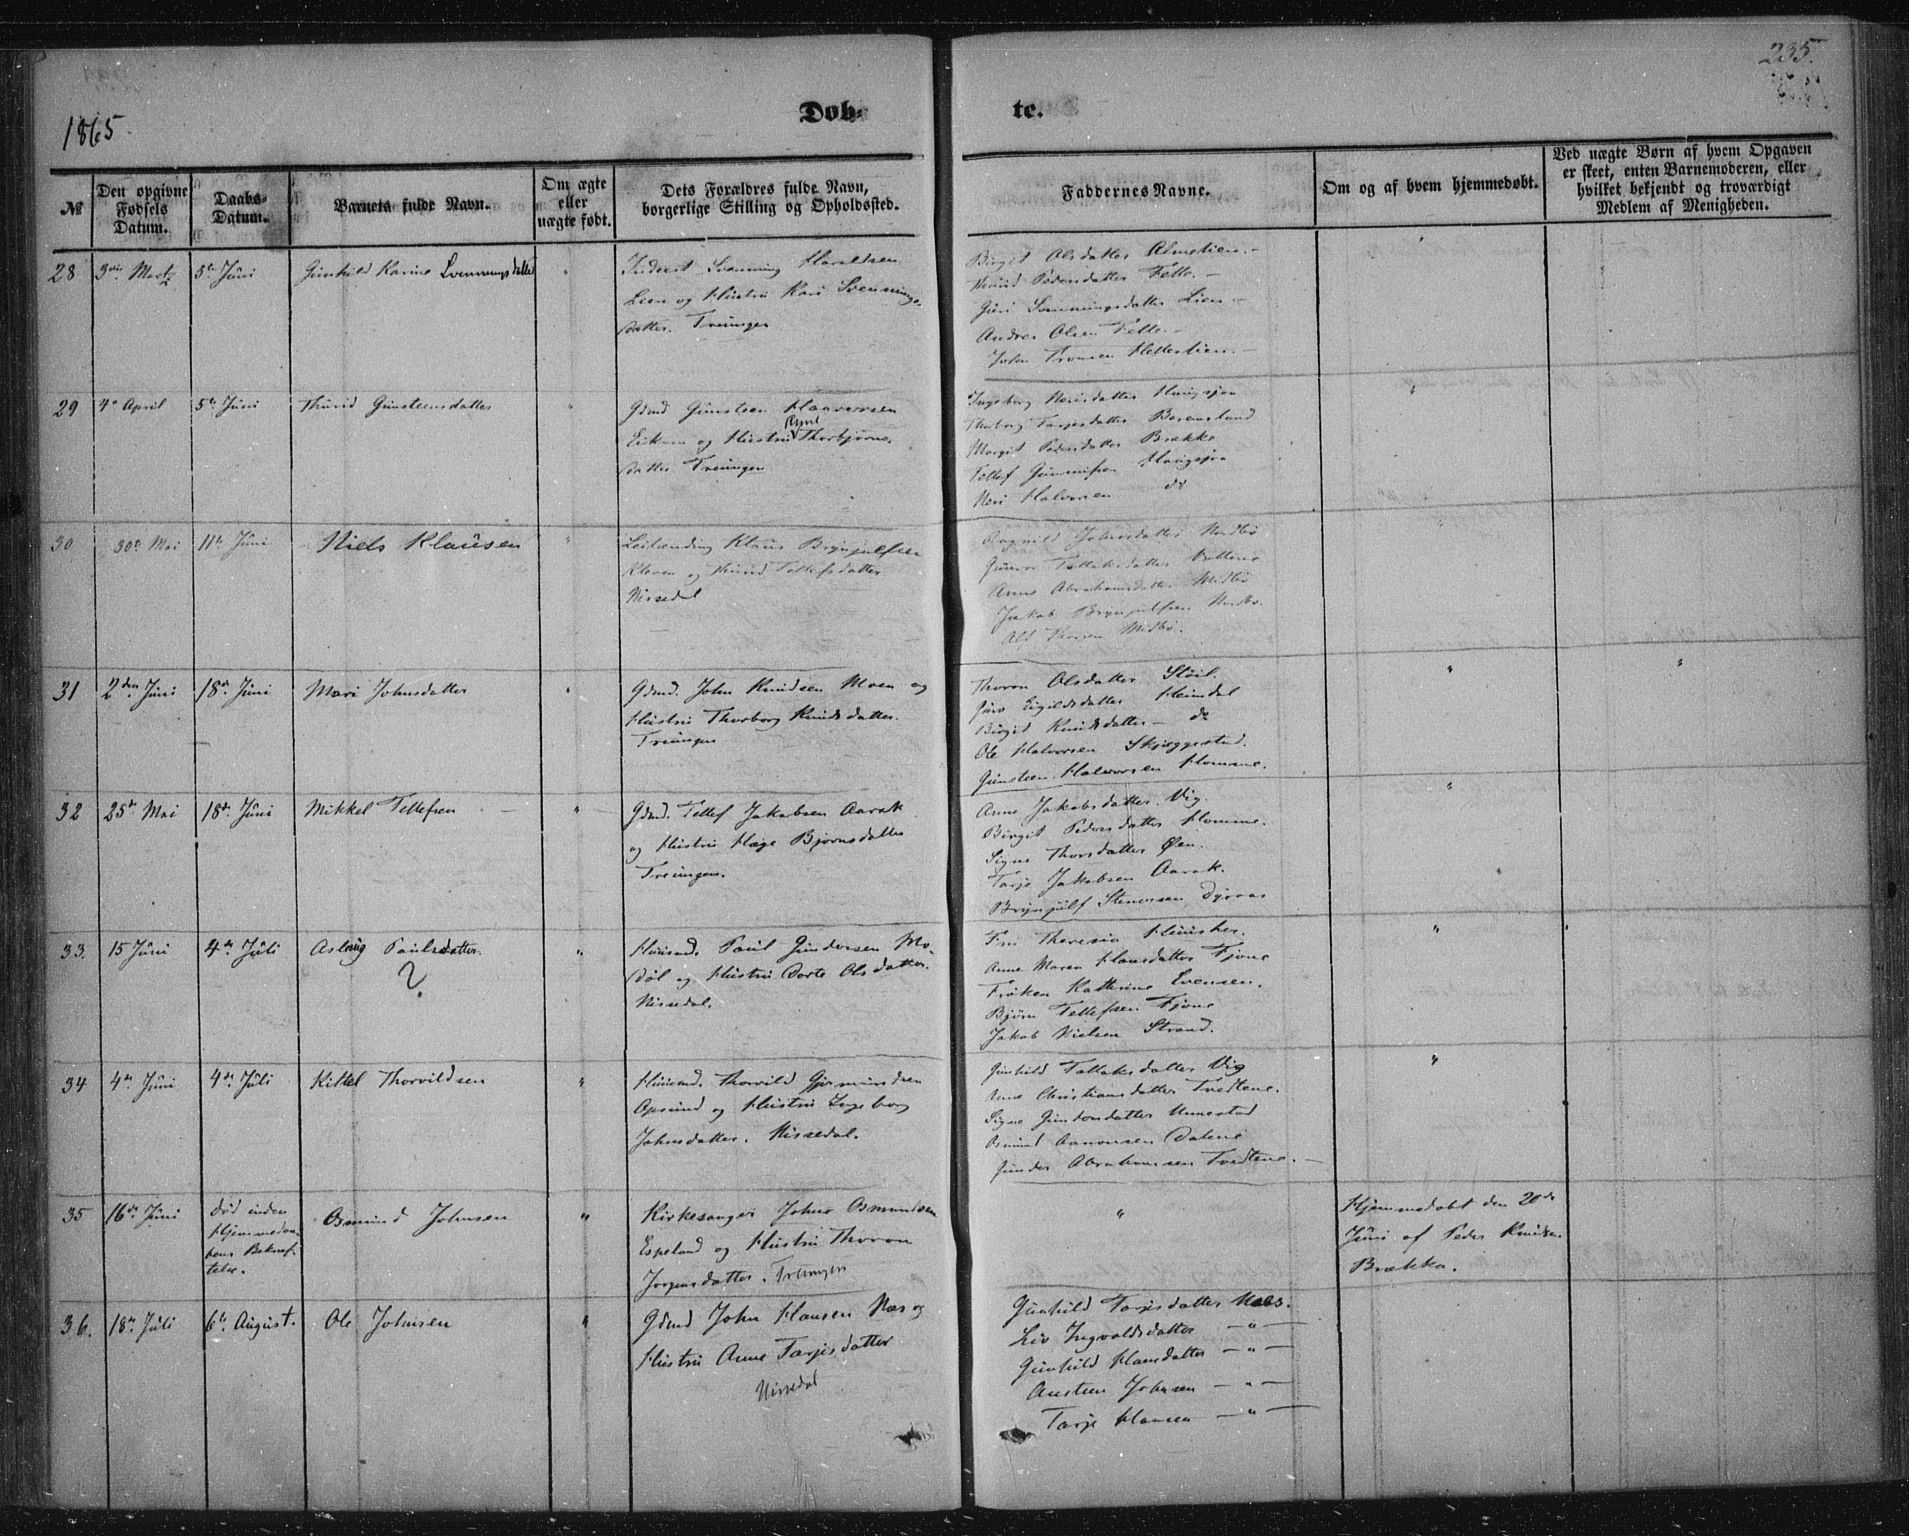 235.
1865
Døb-
te.
№
Den opgivne Fødsels Datum.
Daabs-Datum.
Barnets fulde Navn.
Om ægte eller uægte født.
Dets Forældres fulde Navn, borgerlige Stilling og Opholdssted.
Faddernes Navne.
Om og af hvem hjemmedøbt.
Ved uægte Børn af hvem Opgaven er skeet, enten Barnemoderen, eller hvilket bekjendt og troværdigt Medlem af Menigheden.
28
3die Marts
5te Juni
Gunhild Karine Svenningsdatter
"
Inderst Svenning Haraldsen
Lien og Hustru Kari Svennings-
datter. Treungen
Birgit Olsdatter
Thurid Pedersdatter Felle. -
Guri Svenningsdatter Lien. -
Andres Olsen Felle -
John Tronsen
"
29
4de April
5te Juni
Thurid Gunsteensdatter
"
Gdmd Gunsteen Halvorsen
Eikum og Hustru Thorbjørns-
datter Treungen
Ingeborg Nerisdatter Haugsjaa
Thorborg Tarjesdatter
Margit Pedersdatter Brækka
Tellef Gunnufsen Haugsjaa
Neri Halvorsen do
"
30
30te Mai
11te Juni
Niels Klausen
"
Leilænding Klaus Brynjulfsen
Kleven og Thurid Tellefsdatter
Nissedal
Aagnild Johnsdatter Nordbø
Gunvor Tallaksdatter
Anne Abrahamsdatter Midbø
Jakob Brynjulfsen Nordbø.
Olb Midbø.
"
31
2den Juni
18de Juni
Mari Johnsdatter
"
Gdmd. John Knudsen Moen og
Hustru Thorborg Knudsdatter.
Treungen
Thoron Olsdatter Støil.
Juro Eigildsdatter Heimdal
Birgit Knudsdatter - do
Ole Halvorsen Skjeggestad.
Gunsteen Halvorsen Homme.
"
"
32
25de Mai
18de Juni
Mikkel Tellefsen
"
Gdmd. Tellef Jakobsen Aarak
og Hustru Hæge Bjørnsdatter
Treungen.
Anne Jakobsdatter Vig.
Birgit Pedersdatter Homme.
Signe Thorsdatter Øen.
Tarje Jakobsen Aarak.
Brynjulf Stenersen Dyraas
"
33.
15 Juni
4de Juli
Aslaug Paulsdatter.
?
"
Huusmd. Poul Gundersen Mo-
døl og Hustru Dorte Olsdatter.
Nissedal.
Fru Theresia
Anne Maren Hansdatter Fjone
Frøken Kathrine Evensen.
Bjørn Tellefsen Fjone
Jakob Nielsen Strand.
"
34
4de Juni
4de Juli
Kittel Thorvildsen
"
Huusmd. Thorvild Gjermundsen
Apsund og Hustru Ingeborg
Johnsdatter. Nissedal.
Gunhild Tallaksdatter Vig
Anne Christiansdatter Tvedtene.
Signe Gundersdatter
Osmund Aanonsen Dalene
Gunder Abrahamsen Tvedtene. -
"
35
16de Juni
død inden
Hjemmedaa-
bens Bekræf-
telse.
Osmund Johnsen
"
Kirkesanger John Osmundsen
Espeland og Hustru Thoron
Jørgensdatter. Treungen
"
Hjemmedøbt den 20de
Juni af Peder Knudsen
Brækka.
36.
18de Juli
6te August.
Ole Johnsen
"
Gdmd John Hansen Næs og
Hustru Anne Tarjesdatter
Nissedal
Gunhild Tarjesdatter Næs.
Liv Ingvaldsdatter - " -
Gunhild Hansdatter - " -
Austen Johnsen - " -
Tarje Hansen - " -